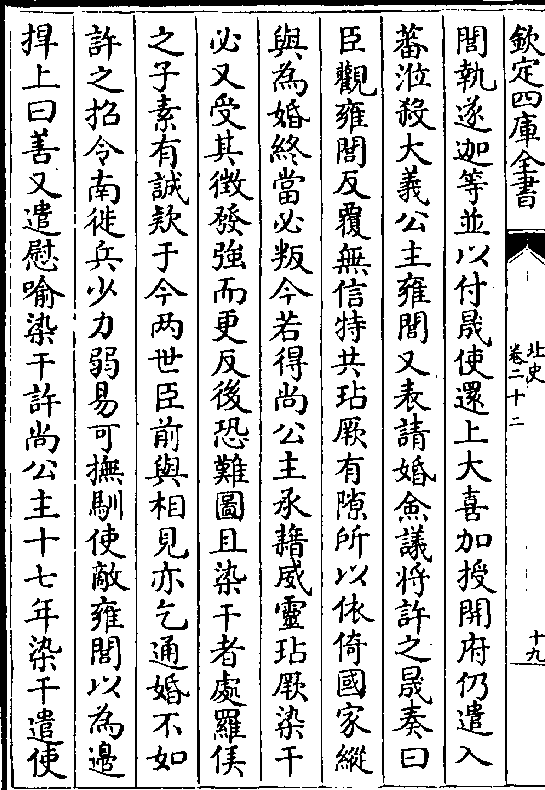 欽定四庫全書
北史
卷二十二
十九
閭執遂迦等並以付晟使還上大喜加授開府仍遣入
蕃涖殺大義公主雍閭又表請婚僉議將許之晟奏曰
臣觀雍閭反覆無信特共玷厥有隙所以依倚國家縱
與為婚終當必叛今若得尚公主承藉威靈玷厥染干
必又受其徵發強而更反後恐難圖且染干者處羅侯
之子素有誠欵于今两世臣前與相見亦乞通婚不如
許之招令南徙兵少力弱易可撫馴使敵雍閭以為邉
捍上曰善又遣慰喻染干許尚公主十七年染干遣使